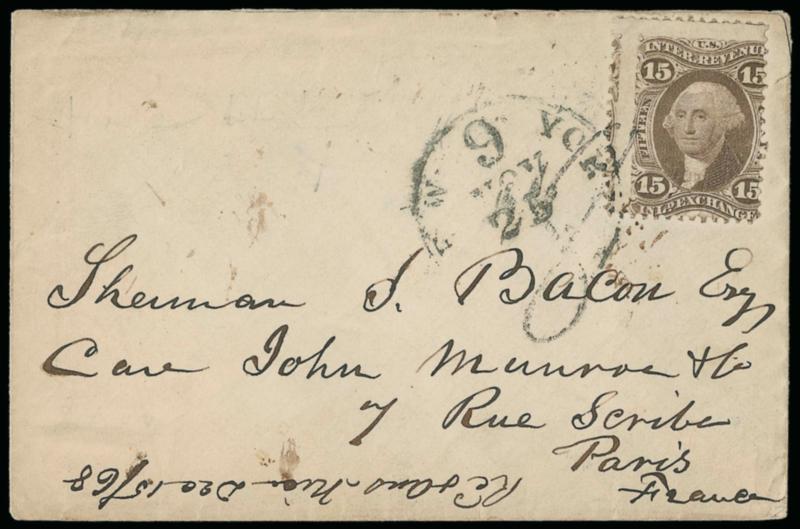 U.S.
INTER. REVENUE
15 15
FIFTEEN CENTS
15 15
INLD EXCHANGE
NEW YORK
9
NOV
25
Sherman S. Bacon Esq
Care John Munroe & Co
7 Rue Scribe
Paris
France
Rec & Ans Nice Dec 15/68